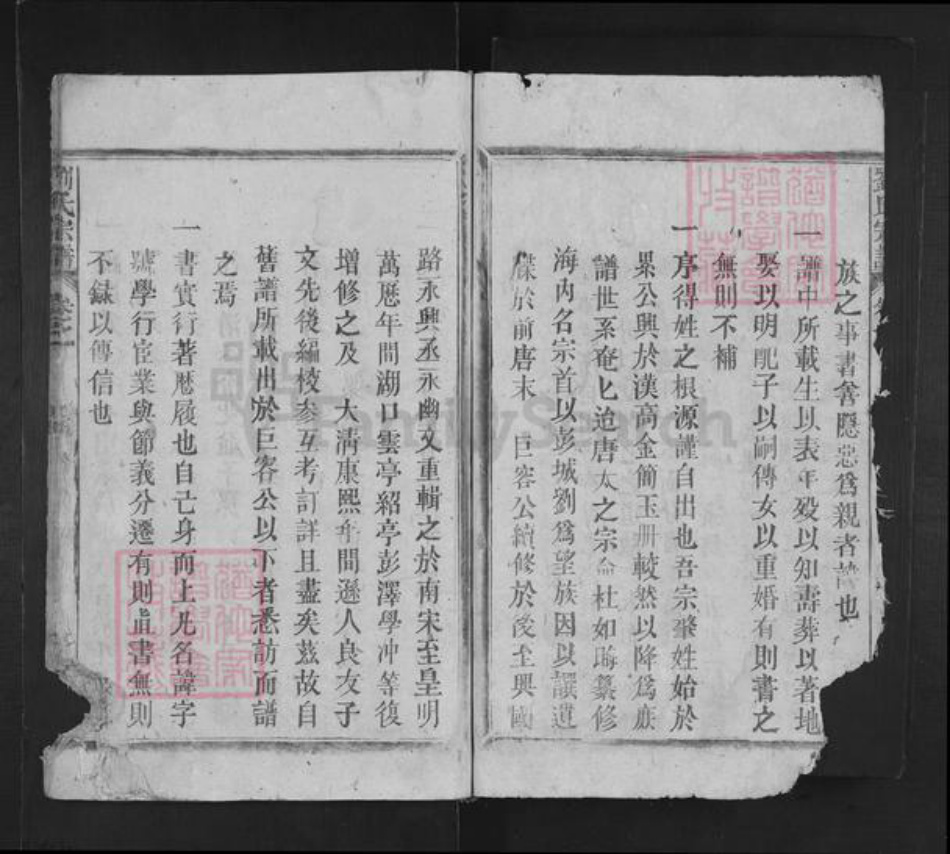 族之事書會隱惡爲親者諱也
一譜中所載生以表年殁以知壽葬以著地
娶以明配子以嗣傳女以重婚有則書之
無則不補
一序得姓之根源謹自出也吾宗肇姓始於
累公興於漢高金簡玉册較然以降爲族
譜世系奄匕迨唐太之宗命杜如晦纂修
海内名宗首以彭城劉爲望族因以譔遺
牒於前唐末 巨容公續修於後至興國
路永興丞永幽文重輯之於南宋至皇明
萬歷年間湖口雲亭紹亭彭澤學冲等復
增修之及 大淸康熙年間遜人良友子
文先後編校参互考訂詳且盡矣茲故自
舊譜所載出於巨容公以下者悉訪而譜
之焉
一書實行著歷履也自亡身而上凡名諱字
號學行宦業與節義分遷有則直書無則
不録以傳信也
劉氏宗譜 卷之一
FamilySearch